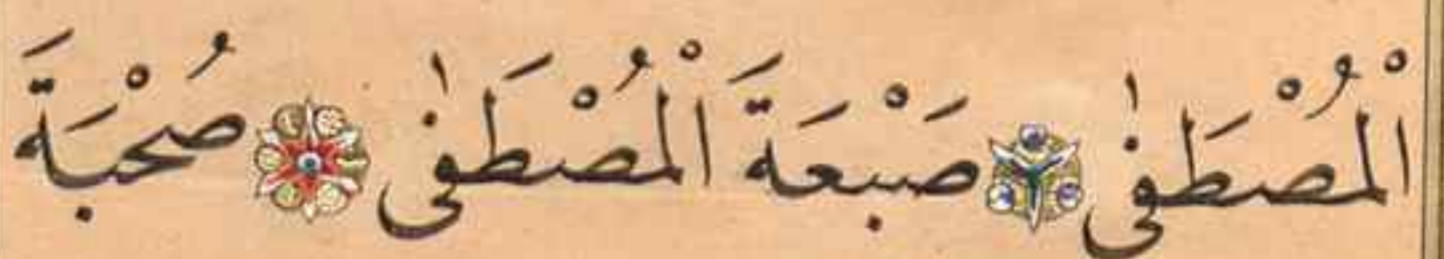 الْمُصْطَفٰى صَبْعَةَ الْمُصْطَفٰى صُحْبَةَ